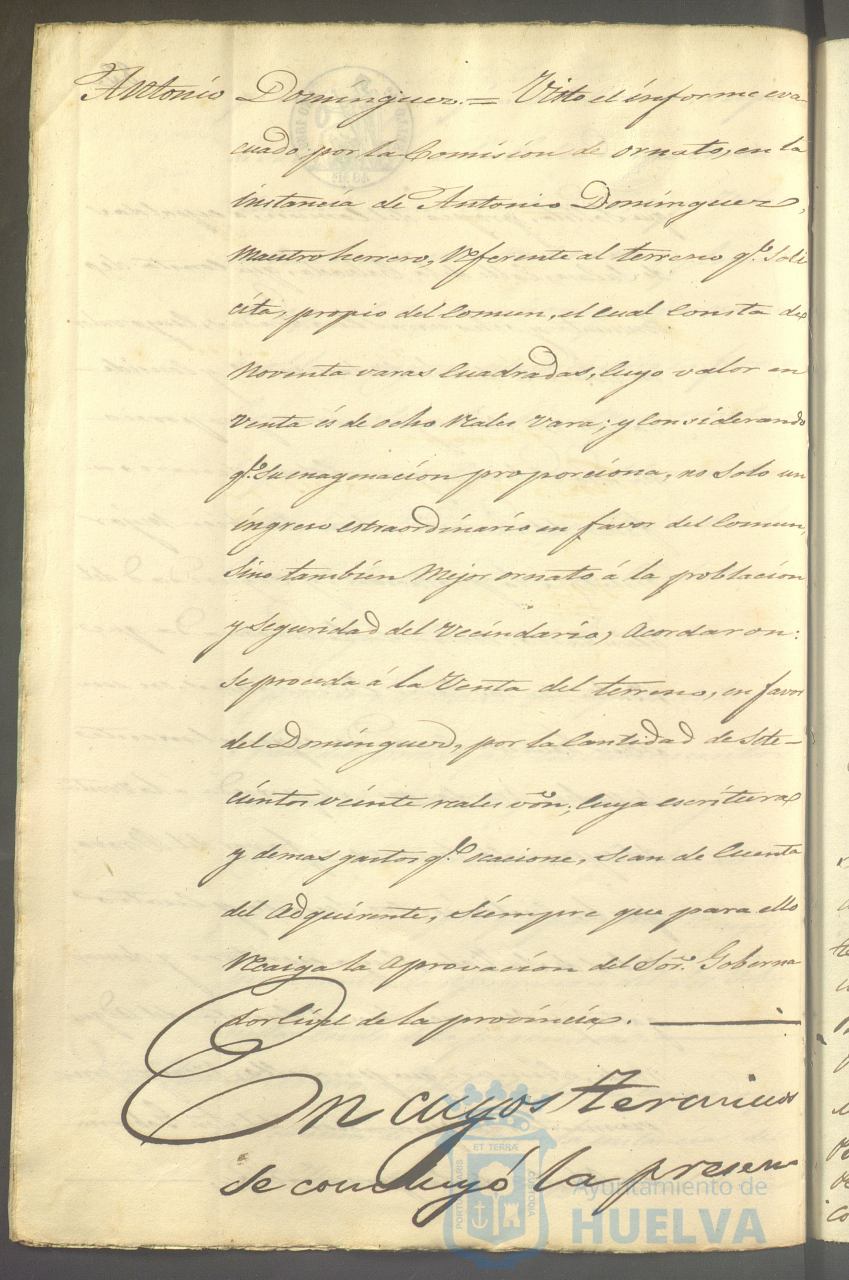 Antonio Dominguez. = Visto el informe eva-
cuado por la Comision de ornato, en la
instancia de Antonio Dominguez,
Maestro herrero, referente al terreno q.e soli
cita, propio del Comun, el cual Consta de
Noventa varas Cuadradas, Cuyo valor en
Venta és de ocho reales Vara; y Considerando
q.e su enagenacion proporciona, no solo un
ingreso estraordinario en favor del Comun,
sino tambien Mejor ornato á la poblacion
y seguridad del Vecindario, acordaron:
se proceda á la Venta del terreno, en favor
del Dominguez, por la Cantidad de Sete-
cientos veinte reales von; Cuya escritura
y demas gastos q.e ocacione, sean de Cuenta
del adquirente, siempre que para ello
recaiga la aprovacion del Sor. Goberna
dor Civil de la provincia.
En cuyos terminos
se concluyó la presen
PORTUS MARIS
ET TERRÆ
CUSTODIA
Ayuntamiento de
HUELVA